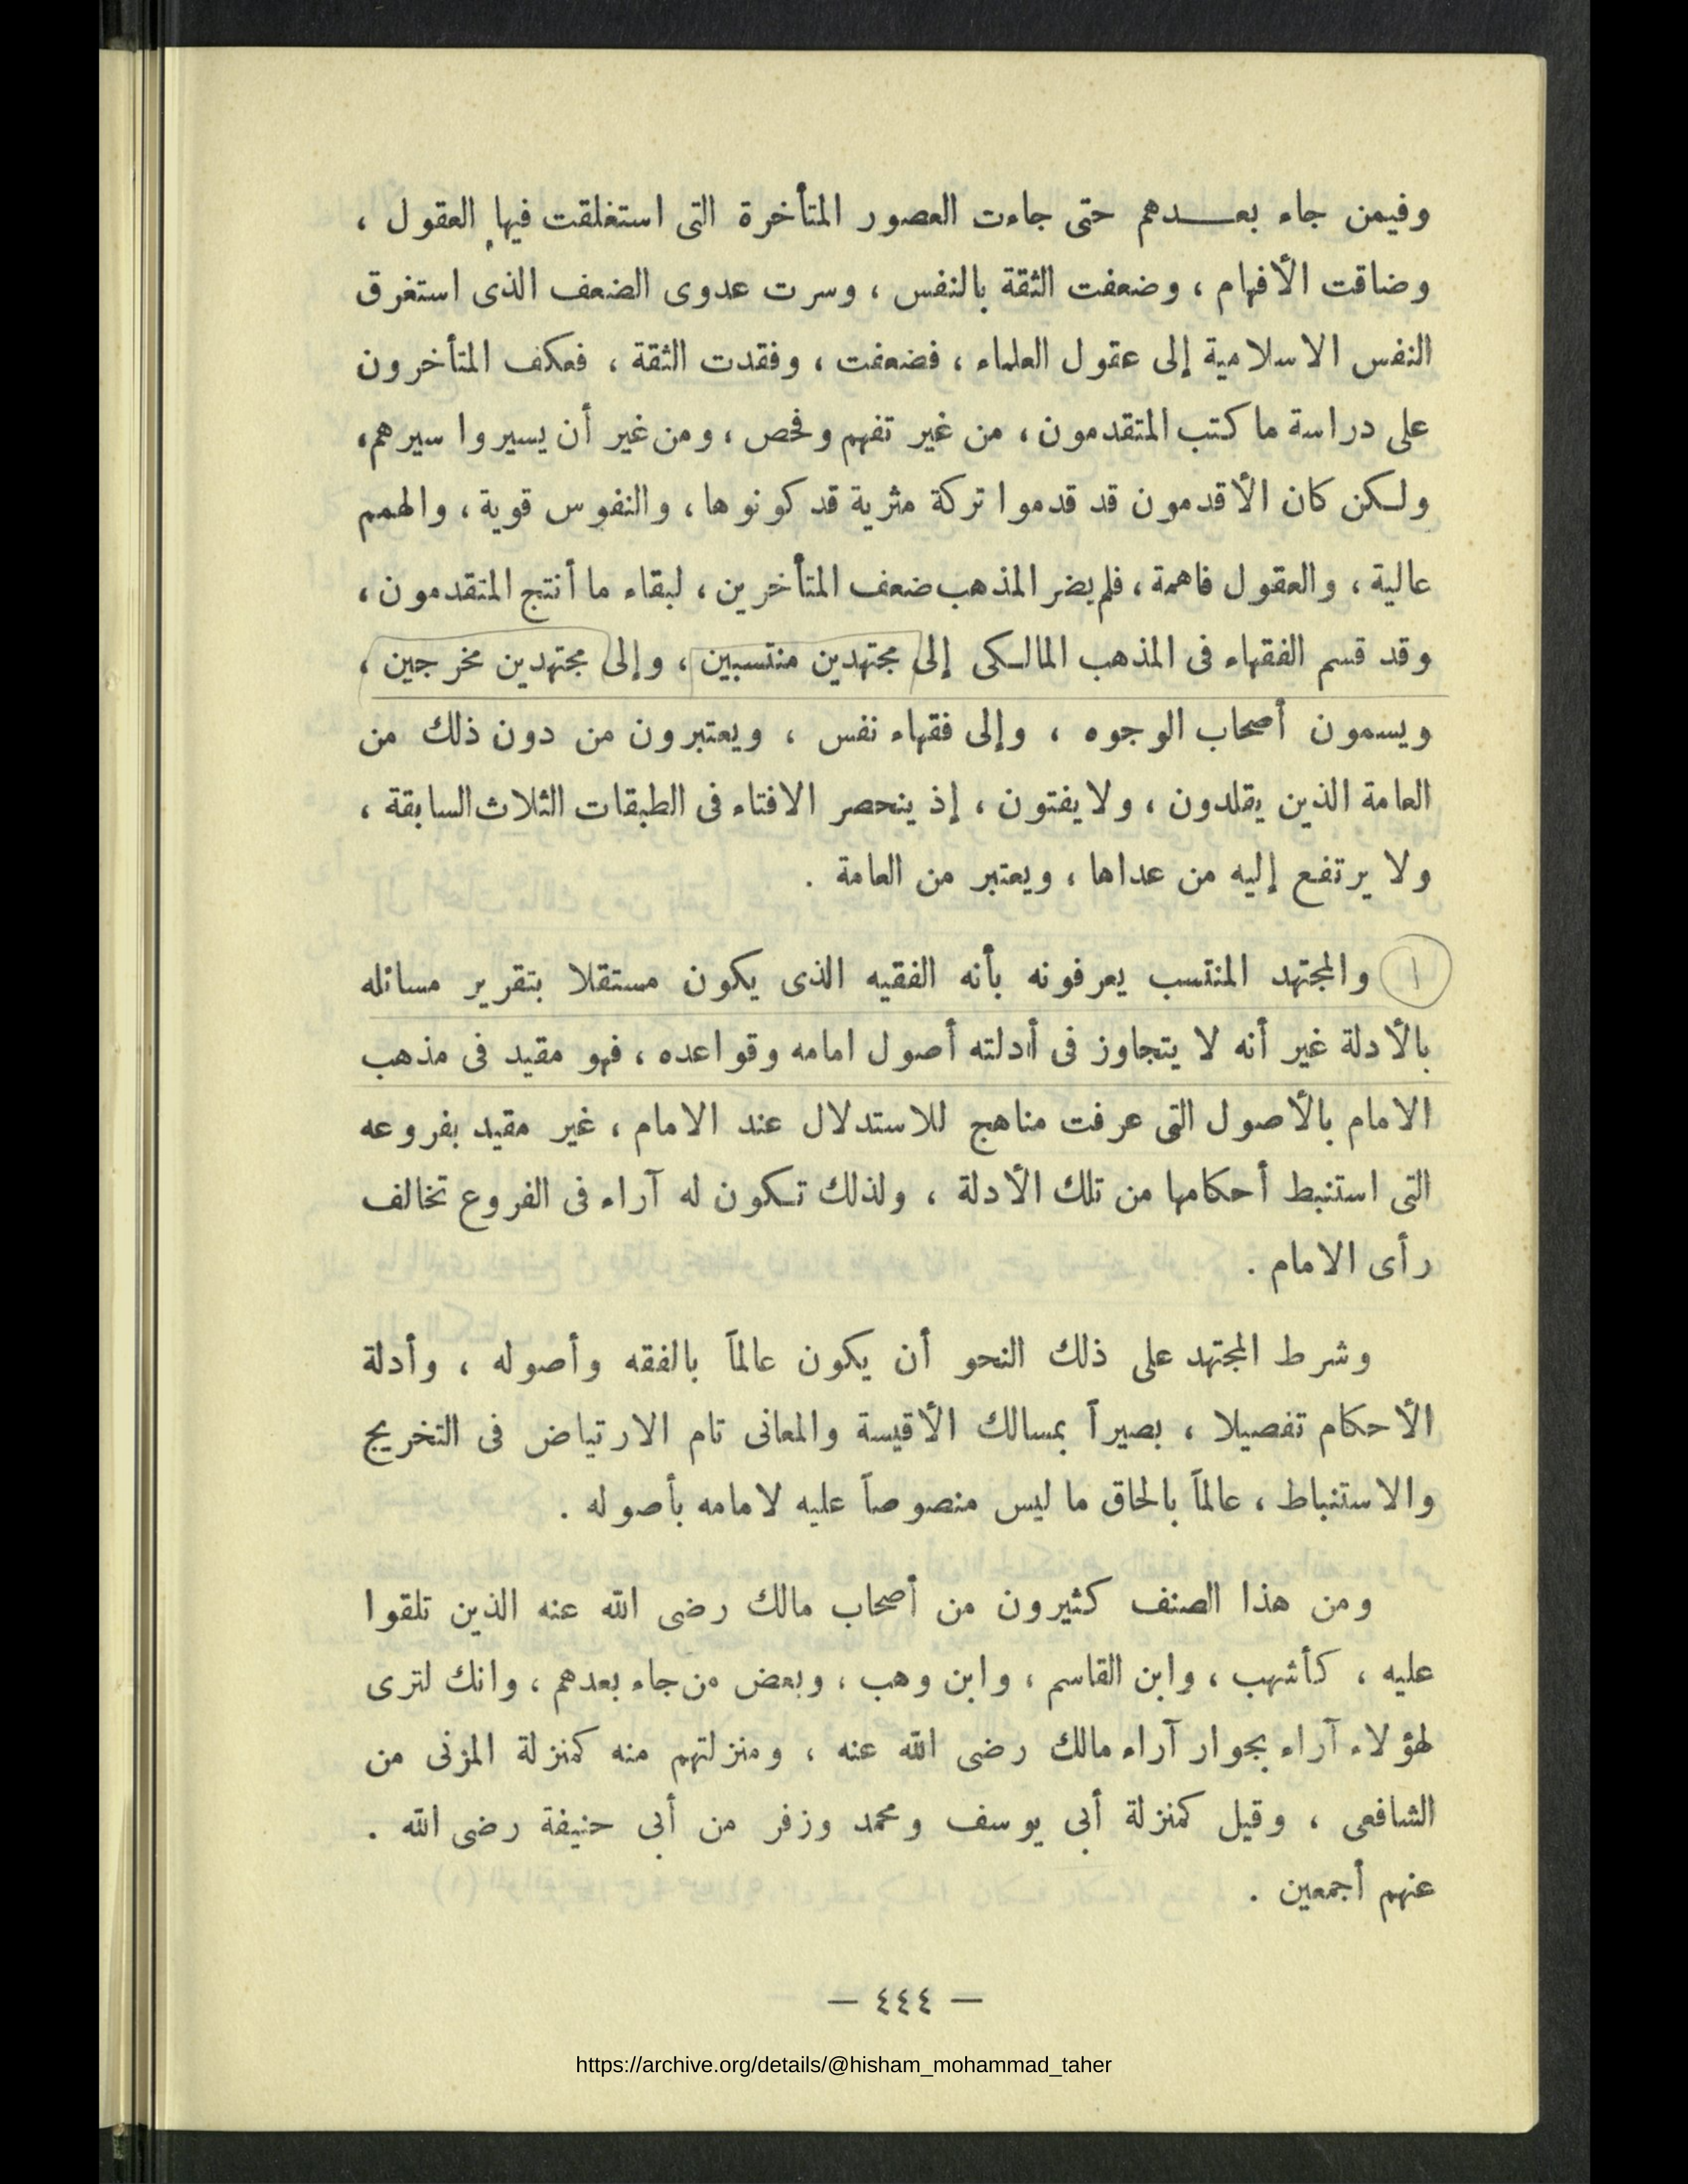 وفيمن جاء بعـــدهم حتى جاءت العصور المتأخرة التى استغلقت فيها العقول ،
وضاقت الأفهام ، وضعفت الثقة بالنفس ، وسرت عدوى الضعف الذى استغرق
النفس الاسلامية إلى عقول العلماء ، فضعفت ، وفقدت الثقة ، فعكف المتأخرون
على دراسة ما كتب المتقدمون ، من غير تفهم وفحص ، ومن غير أن يسيروا سيرهم،
ولكن كان الأقدمون قد قدموا تركة مثرية قد كونوها ، والنفوس قوية ، والهمم
عالية ، والعقول فاهمة ، فلم يضر المذهب ضعف المتأخرين ، لبقاء ما أنتج المتقدمون ،
وقد قسم الفقهاء فى المذهب المالكى إلى مجتهدين منتسبين ، وإلى مجتهدين مخرجين ،
ويسمون أصحاب الوجوه ، وإلى فقهاء نفس ، ويعتبرون من دون ذلك من
العامة الذين يقلدون ، ولا يفتون ، إذ ينحصر الافتاء فى الطبقات الثلاث السابقة ،
ولا يرتفع إليه من عداها ، ويعتبر من العامة .
١ والمجتهد المنتسب يعرفونه بأنه الفقيه الذى يكون مستقلا بتقرير مسائله
بالأدلة غير أنه لا يتجاوز فى أدلته أصول امامه وقواعده ، فهو مقيد فى مذهب
الامام بالأصول التى عرفت مناهج للاستدلال عند الامام ، غير مقيد بفروعه
التى استنبط أحكامها من تلك الأدلة ، ولذلك تكون له آراء فى الفروع تخالف
رأى الامام .
وشرط المجتهد على ذلك النحو أن يكون عالماً بالفقه وأصوله ، وأدلة
الأحكام تفصيلا ، بصيراً بمسالك الأقيسة والمعانى تام الارتياض فى التخريج
والاستنباط ، عالماً بالحاق ما ليس منصوصاً عليه لامامه بأصوله .
ومن هذا الصنف كثيرون من أصحاب مالك رضى الله عنه الذين تلقوا
عليه ، كأشهب ، وابن القاسم ، وابن وهب ، وبعض من جاء بعدهم ، وانك لترى
لهؤلاء آراء بجوار آراء مالك رضى الله عنه ، ومنزلتهم منه كمنزلة المزنى من
الشافعى ، وقيل كمنزلة أبى يوسف ومحمد وزفر من أبى حنيفة رضى الله .
عنهم أجمعين .
— ٤٤٤ —
https://archive.org/details/@hisham_mohammad_taher